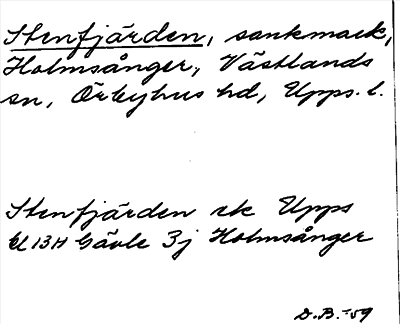 Stenfjärden, sankmark,
Holmsånger, Västlands
sn, Örbyhus hd, Upps. l.
Stenfjärden ek Upps
bl 13H Gävle 3j Holmsånger
D.B. -59